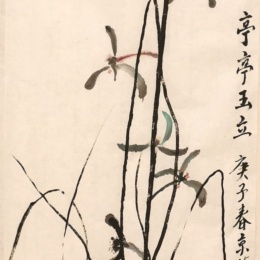 亭亭玉立
庚子春京